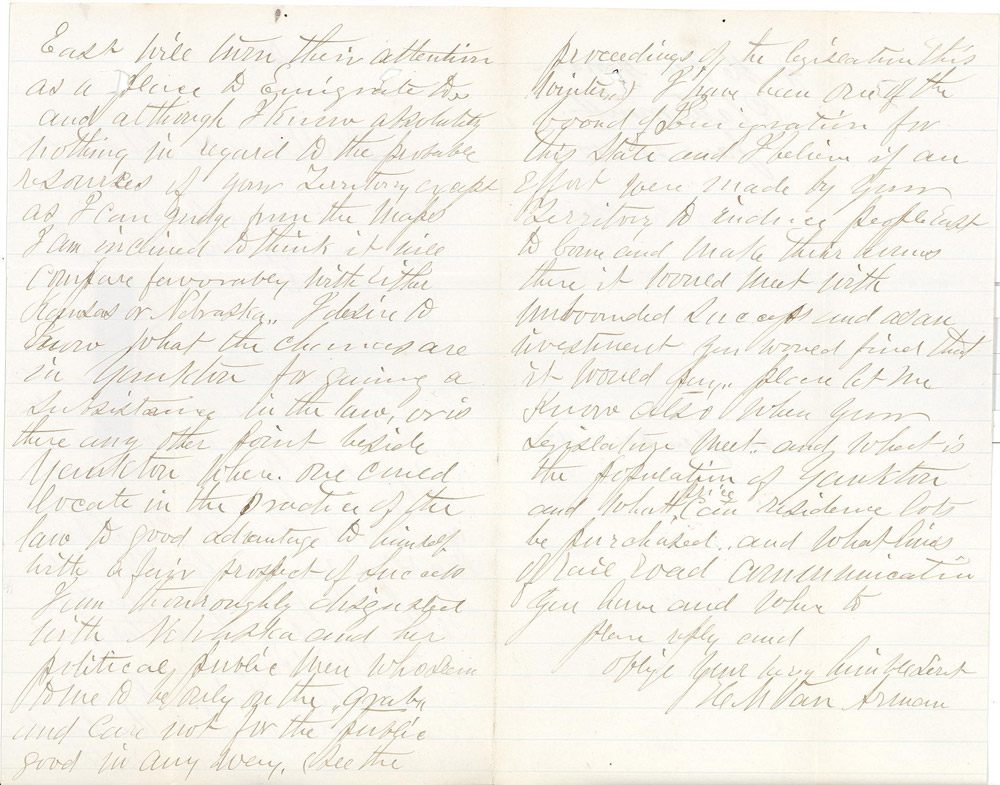 East will turn their attention
as a place to Emigrate to
and although I know absolutely
nothing in regard to the probable
resources of your Territory except
as I can judge from the maps
I am inclined to think it will
compare favorably with Either
Kansas or Nebraska,, I desire to
know what the chances are
in Yankton for gaining a
Subsistance in the law, or is
there any other point beside
Yankton where one could
locate in the practice of the
law to good advantage to himself
with a fair prospect of success
I am thouroughly disgusted
with Nebraska and her
political, public men who seem
to me to be only on the "grab"
and Care not for the public
good in any way. (See the
proceedings of the legislature this
winter) I have been one of the
board of Emigration for
this State and I believe if an
Effort were made by your
Territory to induce people East
to come and make their homes
there it would meet with
unbounded success and as an
investment you would find that
it would pay,, please let me
Know also when your
Legislature meet,, and what is
the population of Yankton
and what price can residence lots
be purchased,, and what lines
of rail road communication
you have and where to
please reply and
oblige your very humble Servt
H M Van Arman